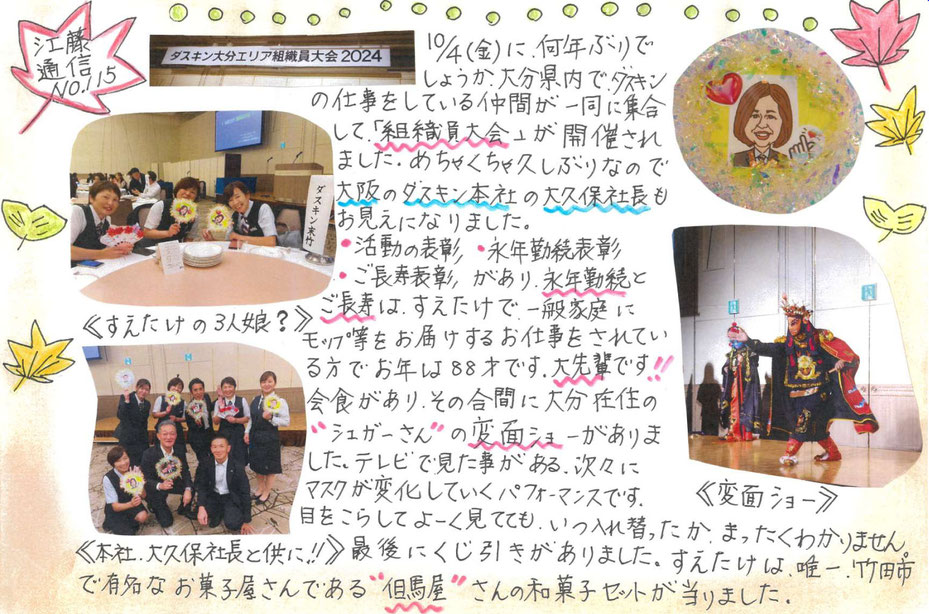 江藤
通信
NO.115
ダスキン大分エリア組織員大会2024
10/4(金)に、何年ぶりで
しょうか、大分県内でダスキン
の仕事をしている仲間が一同に集合
して、「組織員大会」が開催され
ました。めちゃくちゃ久しぶりなので
大阪のダスキン本社の大久保社長も
お見えになりました。
•活動の表彰 •永年勤続表彰
•ご長寿表彰、があり、永年勤続と
ご長寿は、すえたけで、一般家庭に
モップ等をお届けするお仕事をされてい
る方でお年は88才です。大先輩です!!
会食があり、その合間に大分在住の
"シェガーさん"の変面ショーがありま
した。テレビで見た事がある、次々に
マスクが変化していくパフォーマンスです。
目をこらしてよーく見てても、いつ入れ替ったか、まったくわかりません。
最後にくじ引きがありました。すえたけは、唯一、竹田市
で有名なお菓子屋さんである"但馬屋"さんの和菓子セットが当りました。
ダスキン末竹
《すえたけの3人娘?》
《本社、大久保社長と供に!!》
《変面ショー》